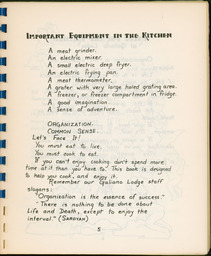 IMPORTANT EQUIPMENT IN THE KITCHEN
A meat grinder.
An electric mixer.
A small electric deep fryer.
An electric frying pan.
A meat thermometer.
A grater with very large holed grating area.
A freezer, or freezer compartment in fridge.
A good imagination.
A sense of adventure.
ORGANIZATION.
COMMON SENSE.
Let's Face It!
You must eat to live.
You must cook to eat.
If you can't enjoy cooking don't spend more
time at it than you have to. This book is designed
to help you cook, and enjoy it.
Remember our Galiano Lodge staff
slogans:
"Organization is the essence of success."
"There is nothing to be done about
Life and Death, except to enjoy the
interval." (SANTAYANA)
5